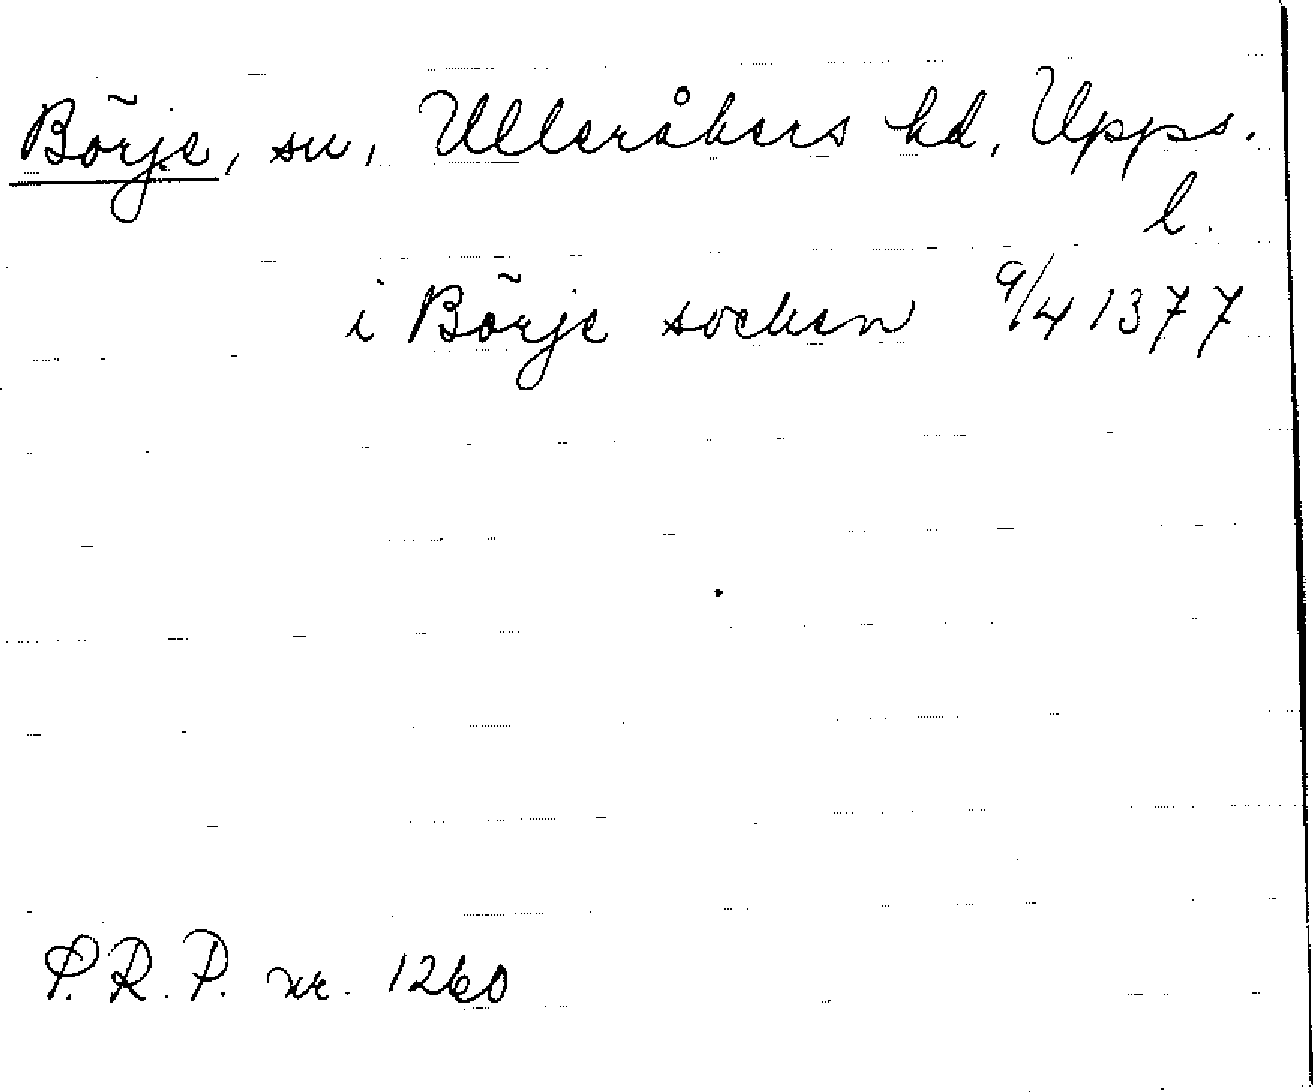 Börje, sn, Ulleråkers hd, Upps.
l.
i Börje socken 9/4 1377
S.R.P. nr. 1260